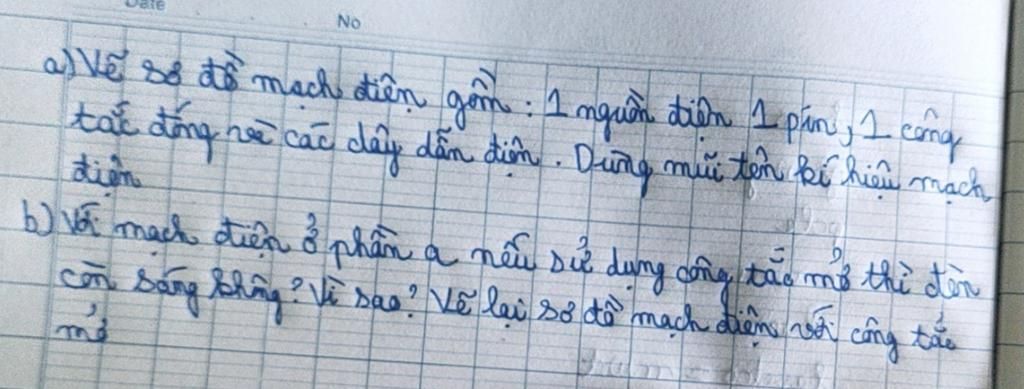 Date
No
a) Vẽ sơ đồ mạch điện gồm : 1 nguồn điện 1 pin, 1 công
tắc đóng và các dây dẫn điện. Dùng mũi tên kí hiệu mạch
điện
b) Với mạch điện ở phần a nếu sử dụng công tắc mở thì đèn
còn sáng không? Vì sao? Vẽ lại sơ đồ mạch điện với công tắc
mở